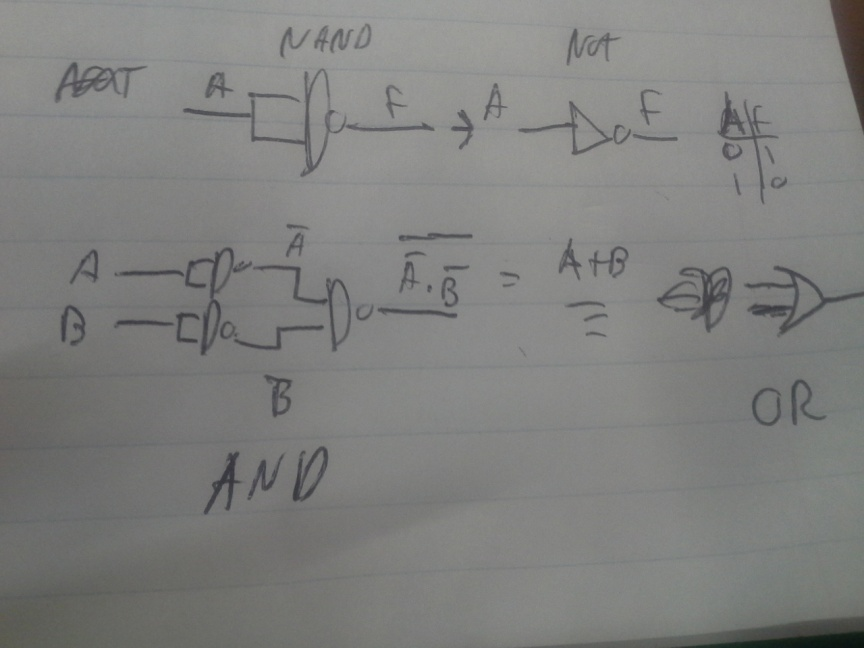 NAND NOT
A F A F A F
0 1
1 0
A A̅ \overline{A̅·B̅} = A+B
B
B̅ OR
AND